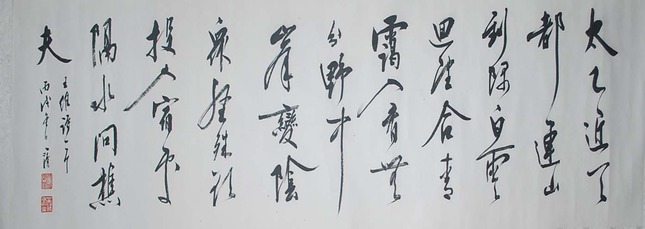 太乙近天
都連山
到隅白雲
迴望合青
靄入看無
分野中
峯變陰
众壑殊欲
投人宿處
隔水問樵
夫
王維詩一首
丙戌年